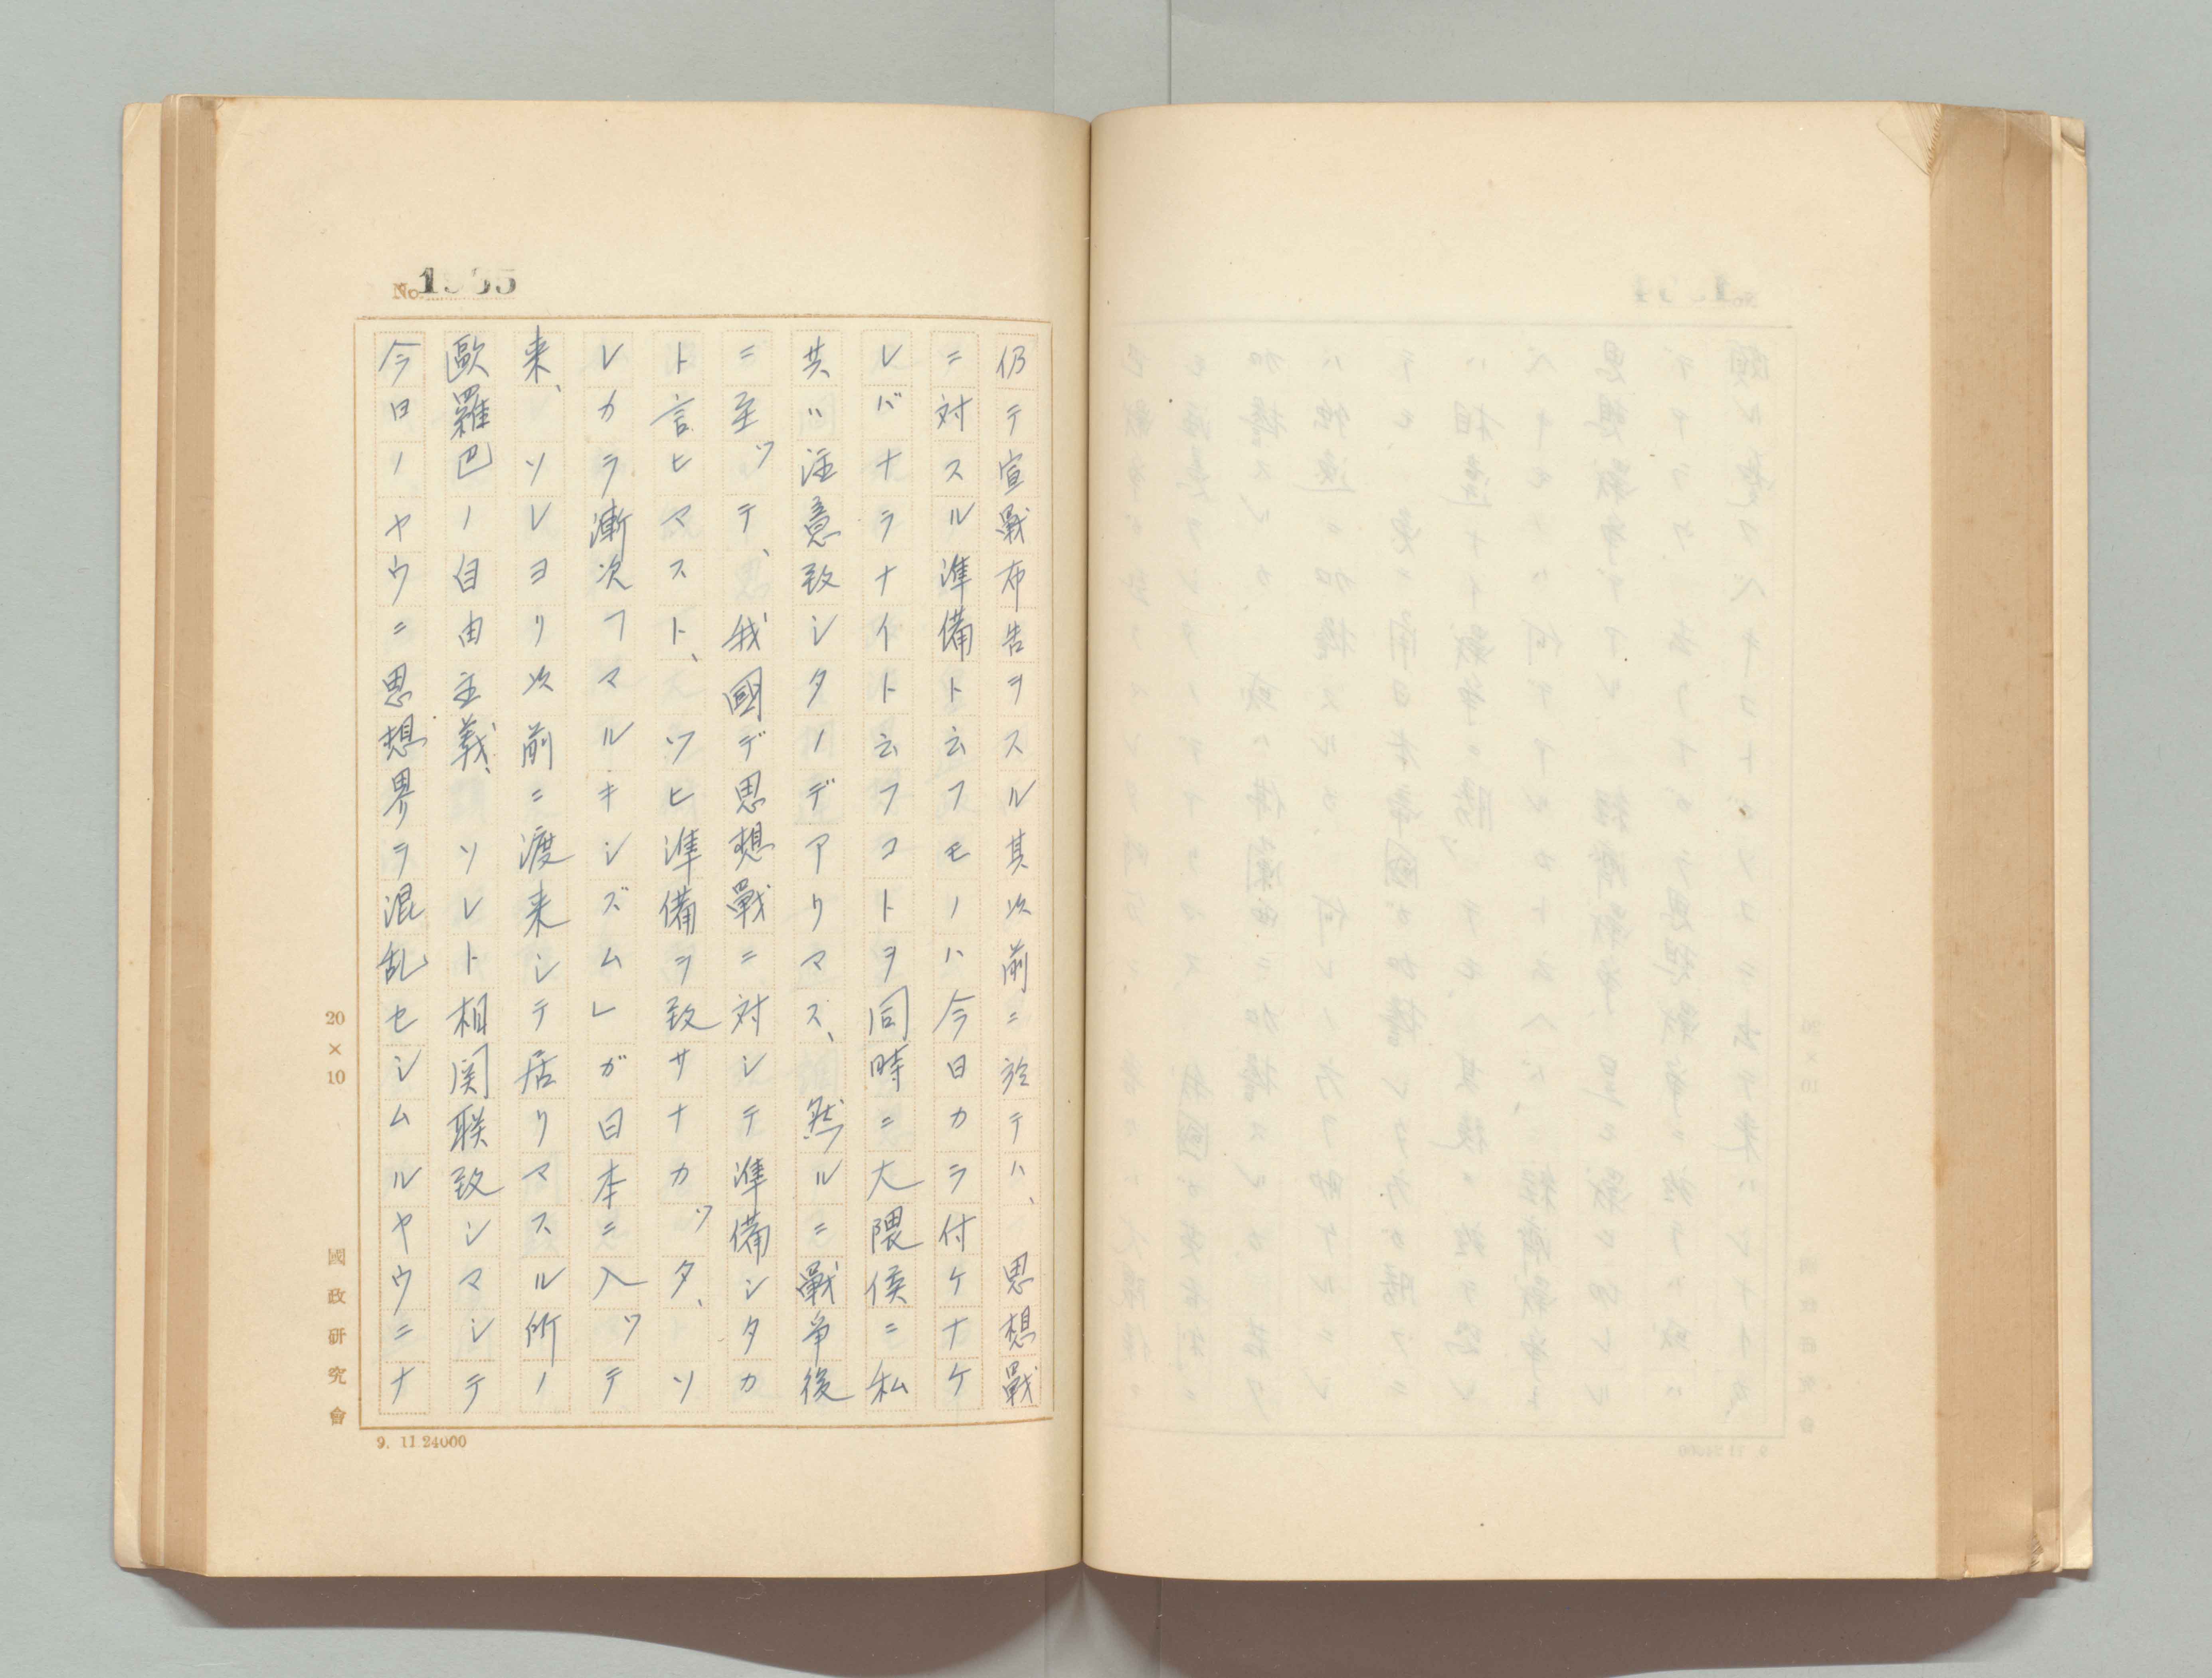 No. 1935
仍テ宣戰布告ヲスル其次前ニ於テハ、思想戰
ニ対スル準備ト云フモノハ今日カラ付ケナケ
レバナラナイト云フコトヲ同時ニ大隈侯ニ私
共ハ注意致シタノデアリマス、然ルニ戰争後
ニ至ッテ、我國デ思想戰ニ対シテ準備シタカ
ト言ヒマスト、ツヒ準備ヲ致サナカッタ、ソ
レカラ漸次「マルキシズム」ガ日本ニ入ッテ
来、ソレヨリ次前ニ渡来シテ居リマスル所ノ
歐羅巴ノ自由主義、ソレト相関聯致シマシテ
今日ノヤウニ思想界ヲ混乱セシムルヤウニナ
20×10
國政研究會
9. 11.24000